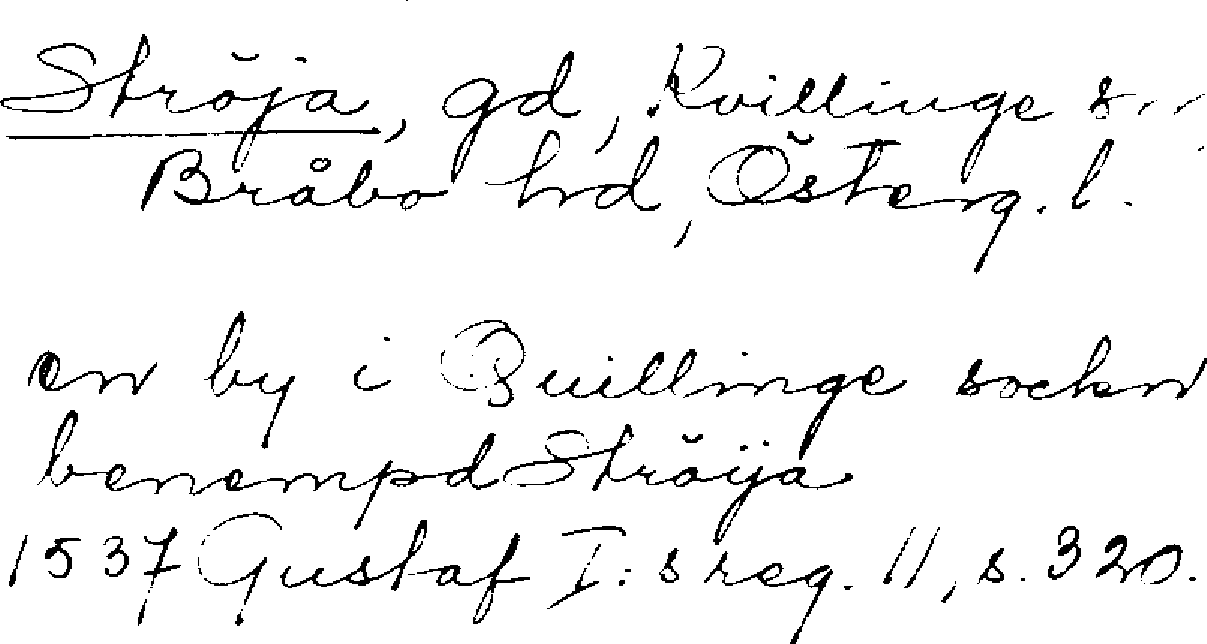 Ströja, gd, Kvillinge sn
Bråbo hd, Österg. l.
en by i Quillinge sockn
benempd Ströija
1537 Gustaf I:s reg. 11, s. 320.